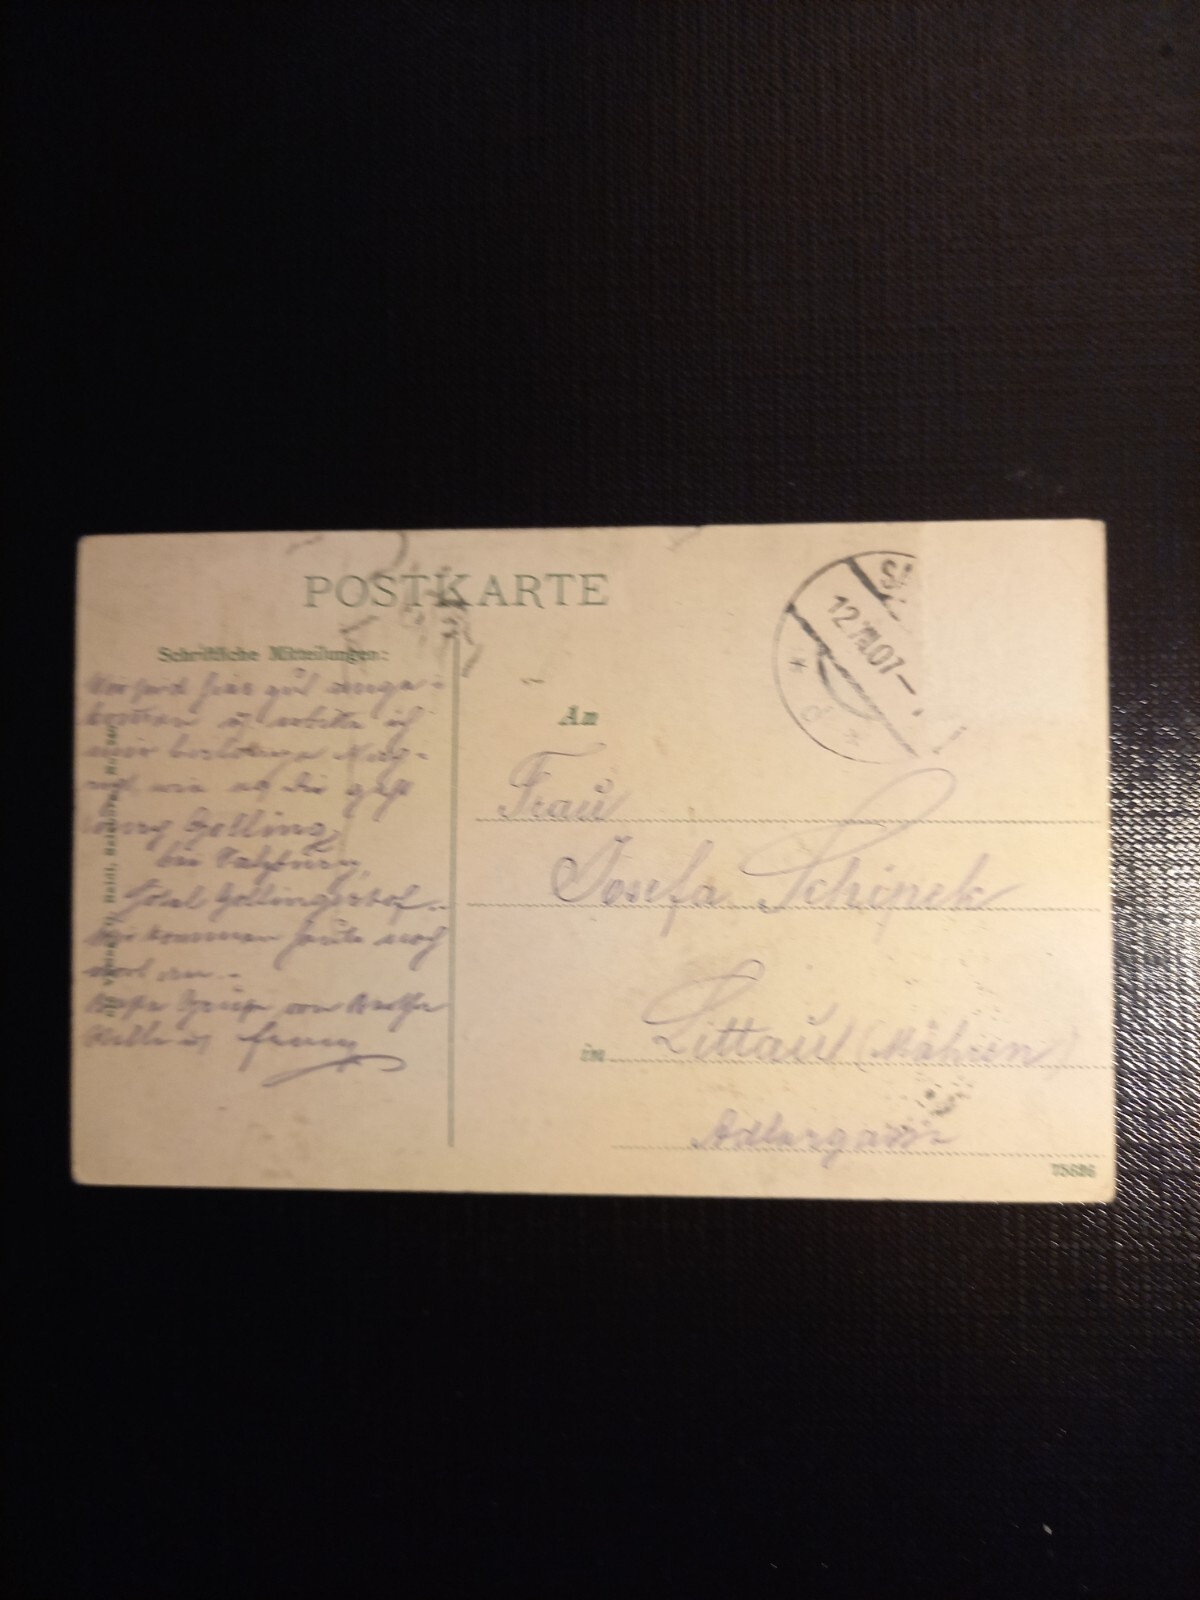 POSTKARTE
Schriftliche Mitteilungen:
Wir sind hier gut ange-
kommen u. erbitte ich
mir Nach-
richt, wie es Dir geht
nach Golling
bei Salzburg,
Hotel Gollingerhof.
Wir kommen heute noch
dort an.
Beste Grüße von
u.
SA
12.VIII.07
d
An
Frau
Josefa Schipek
in Littau (Mähren)
Adlergasse
75686